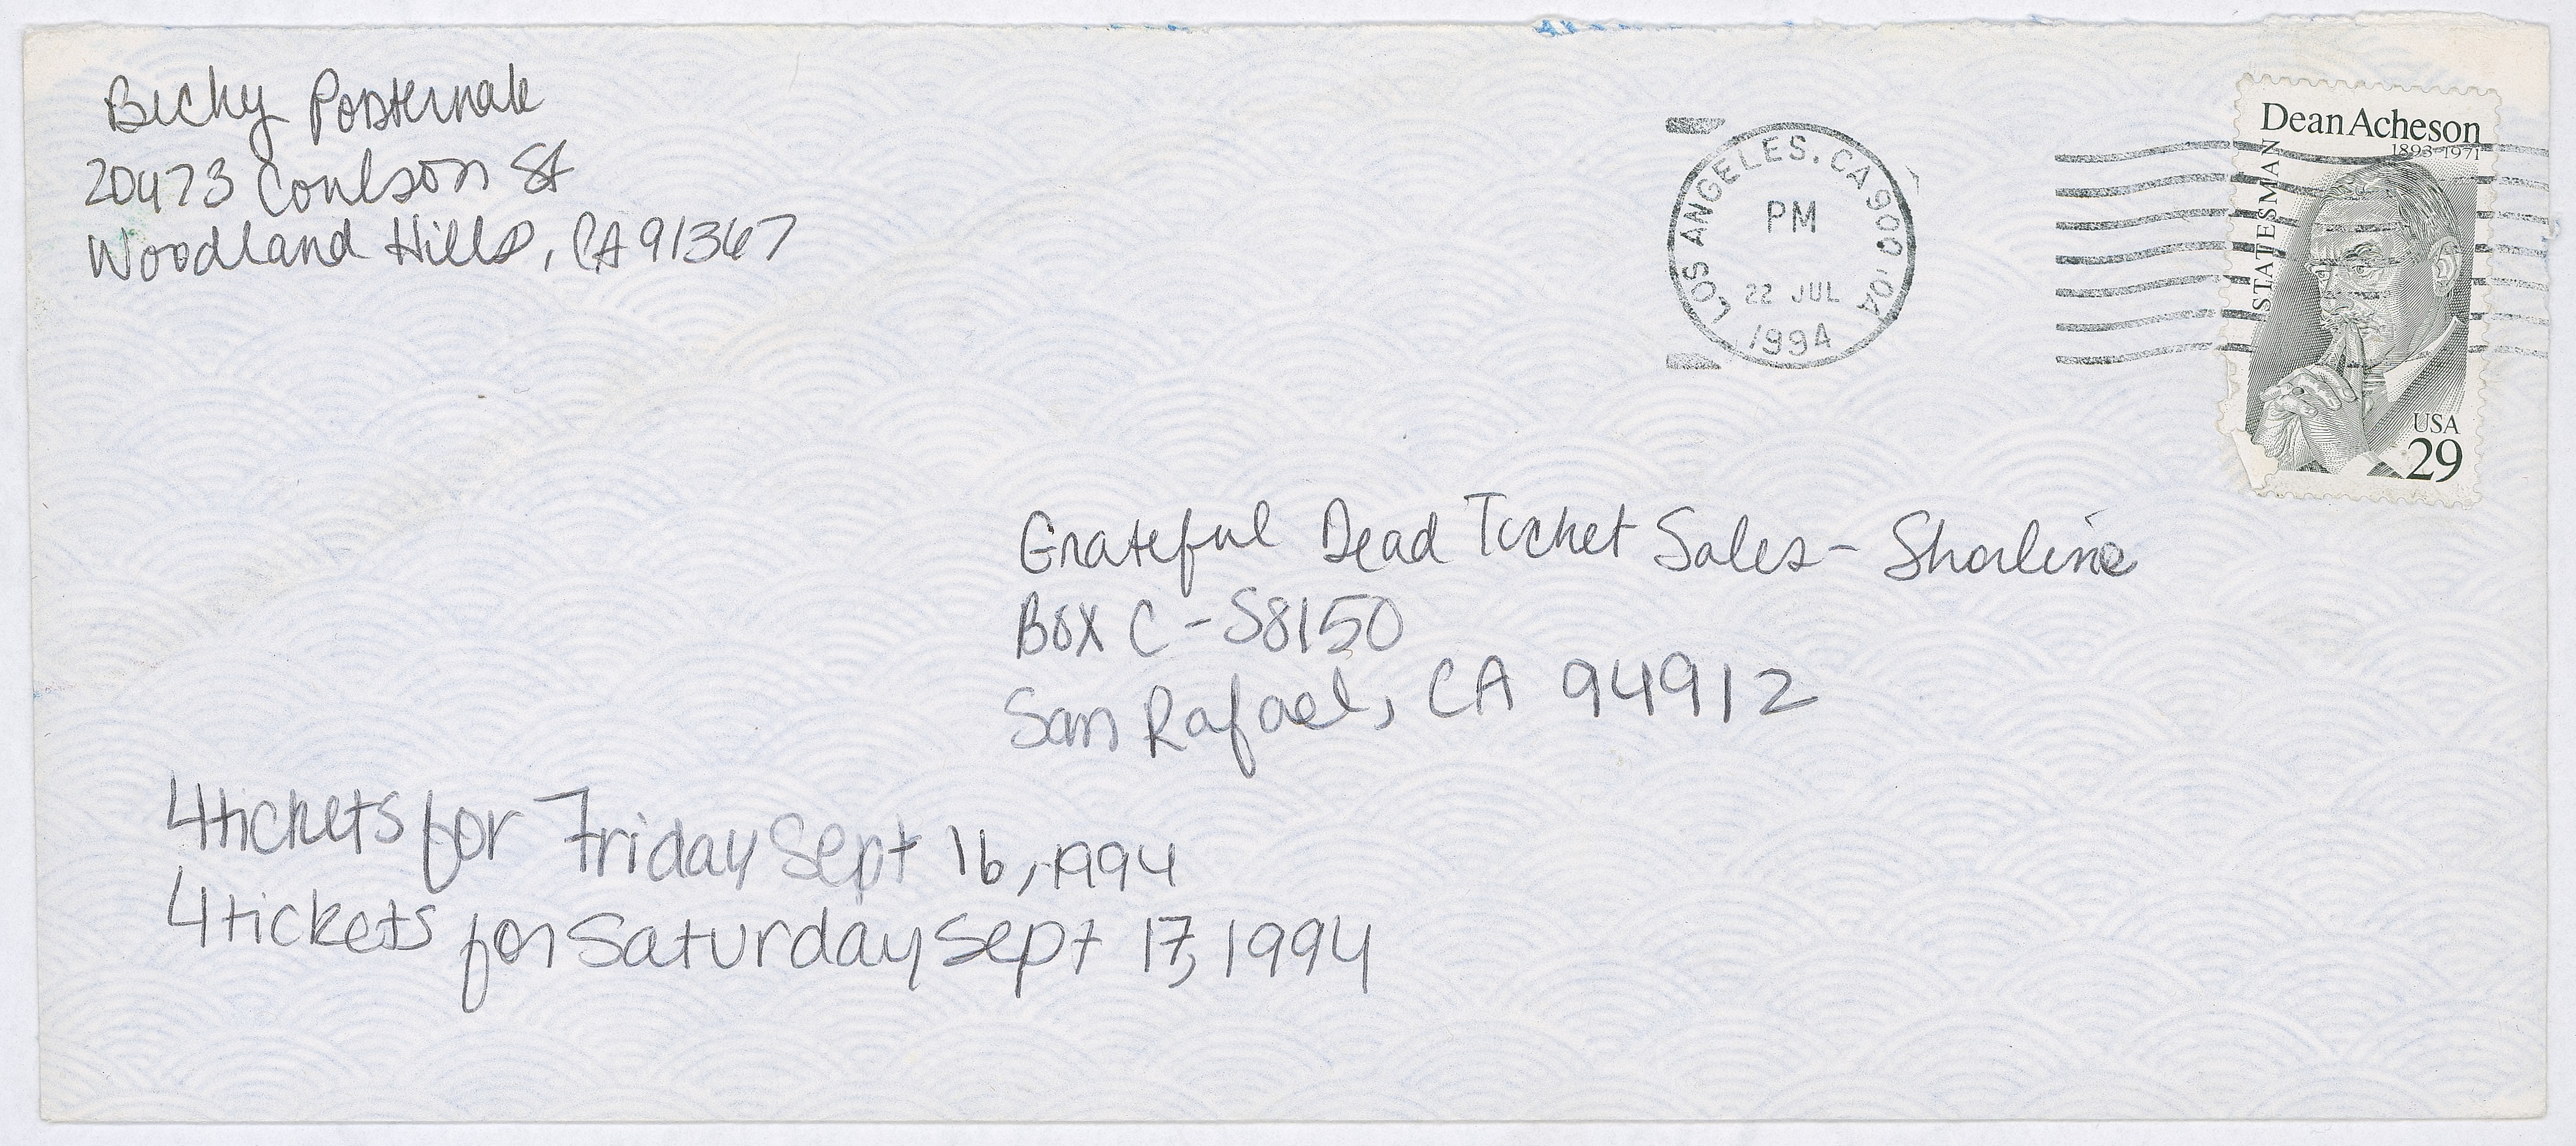 Becky Posternak
20473 Coulson St
Woodland Hills, CA 91367
LOS ANGELES, CA 900 '0A
PM
22 JUL
1994
Dean Acheson
1893-1971
STATESMAN
USA
29
Grateful Dead Ticket Sales - Shorline
Box C - S8150
San Rafael, CA 94912
4 tickets for Friday Sept 16, 1994
4 tickets for Saturday Sept 17, 1994